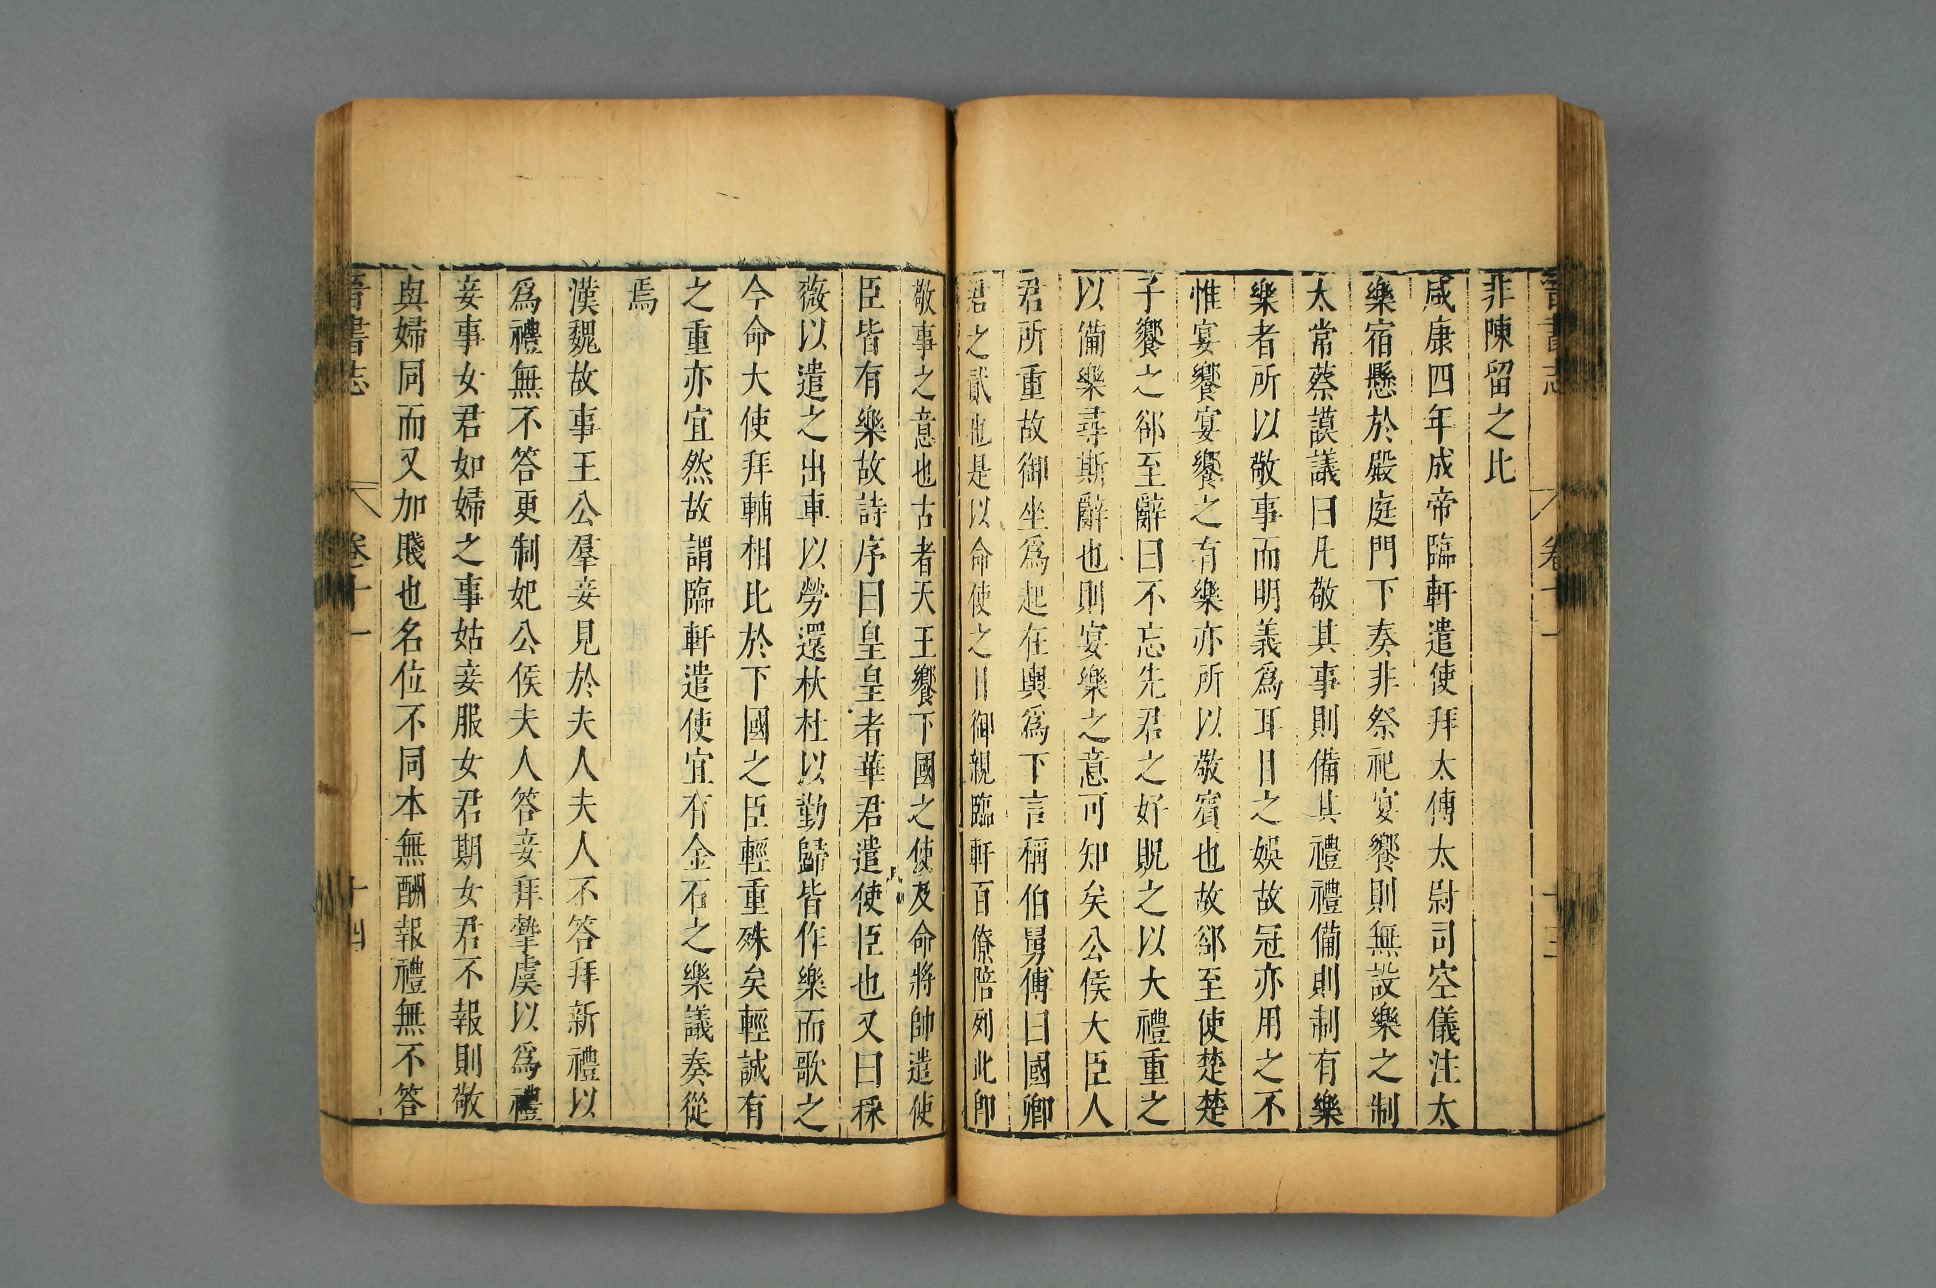 晉書志 卷十一 十三
非陳留之比
咸康四年成帝臨軒遣使拜太傅太尉司空儀注太
樂宿懸於殿庭門下奏非祭祀宴饗則無設樂之制
太常蔡謨議曰凡敬其事則備其禮禮備則制有樂
樂者所以敬事而明義爲耳目之娛故冠亦用之不
惟宴饗宴饗之有樂亦所以敬賓也故郤至使楚楚
子饗之郤至辭曰不忘先君之好貺之以大禮重之
以備樂尋斯辭也則宴樂之意可知矣公侯大臣人
君所重故御坐爲起在輿爲下言稱伯舅傅曰國卿
君之貳也是以命使之日御親臨軒百僚陪列此卽
敬事之意也古者天王饗下國之使及命將帥遣使
臣皆有樂故詩序曰皇皇者華君遣使臣也又曰采
薇以遣之出車以勞還杕杜以勤歸皆作樂而歌之
今命大使拜輔相比於下國之臣輕重殊矣輕誠有
之重亦宜然故謂臨軒遣使宜有金石之樂議奏從
焉
漢魏故事王公羣妾見於夫人夫人不答拜新禮以
爲禮無不答更制妃公侯夫人答妾拜摯虞以爲禮
妾事女君如婦之事姑妾服女君期女君不報則敬
與婦同而又加賤也名位不同本無酬報禮無不答
晉書志 卷十一 十四